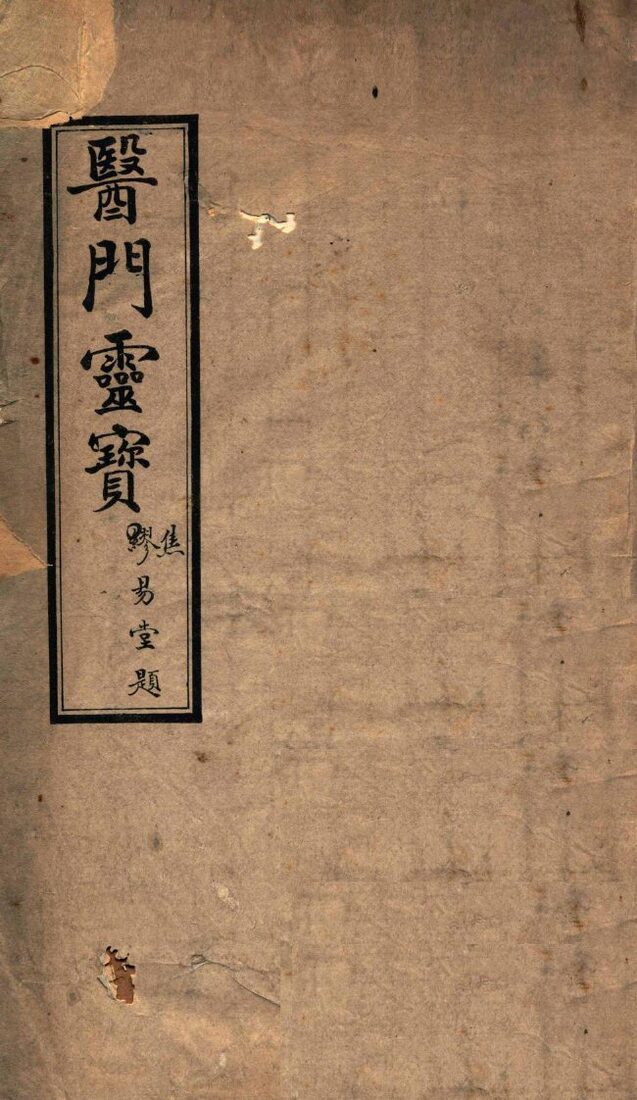 醫門靈寶
焦
繆易堂題